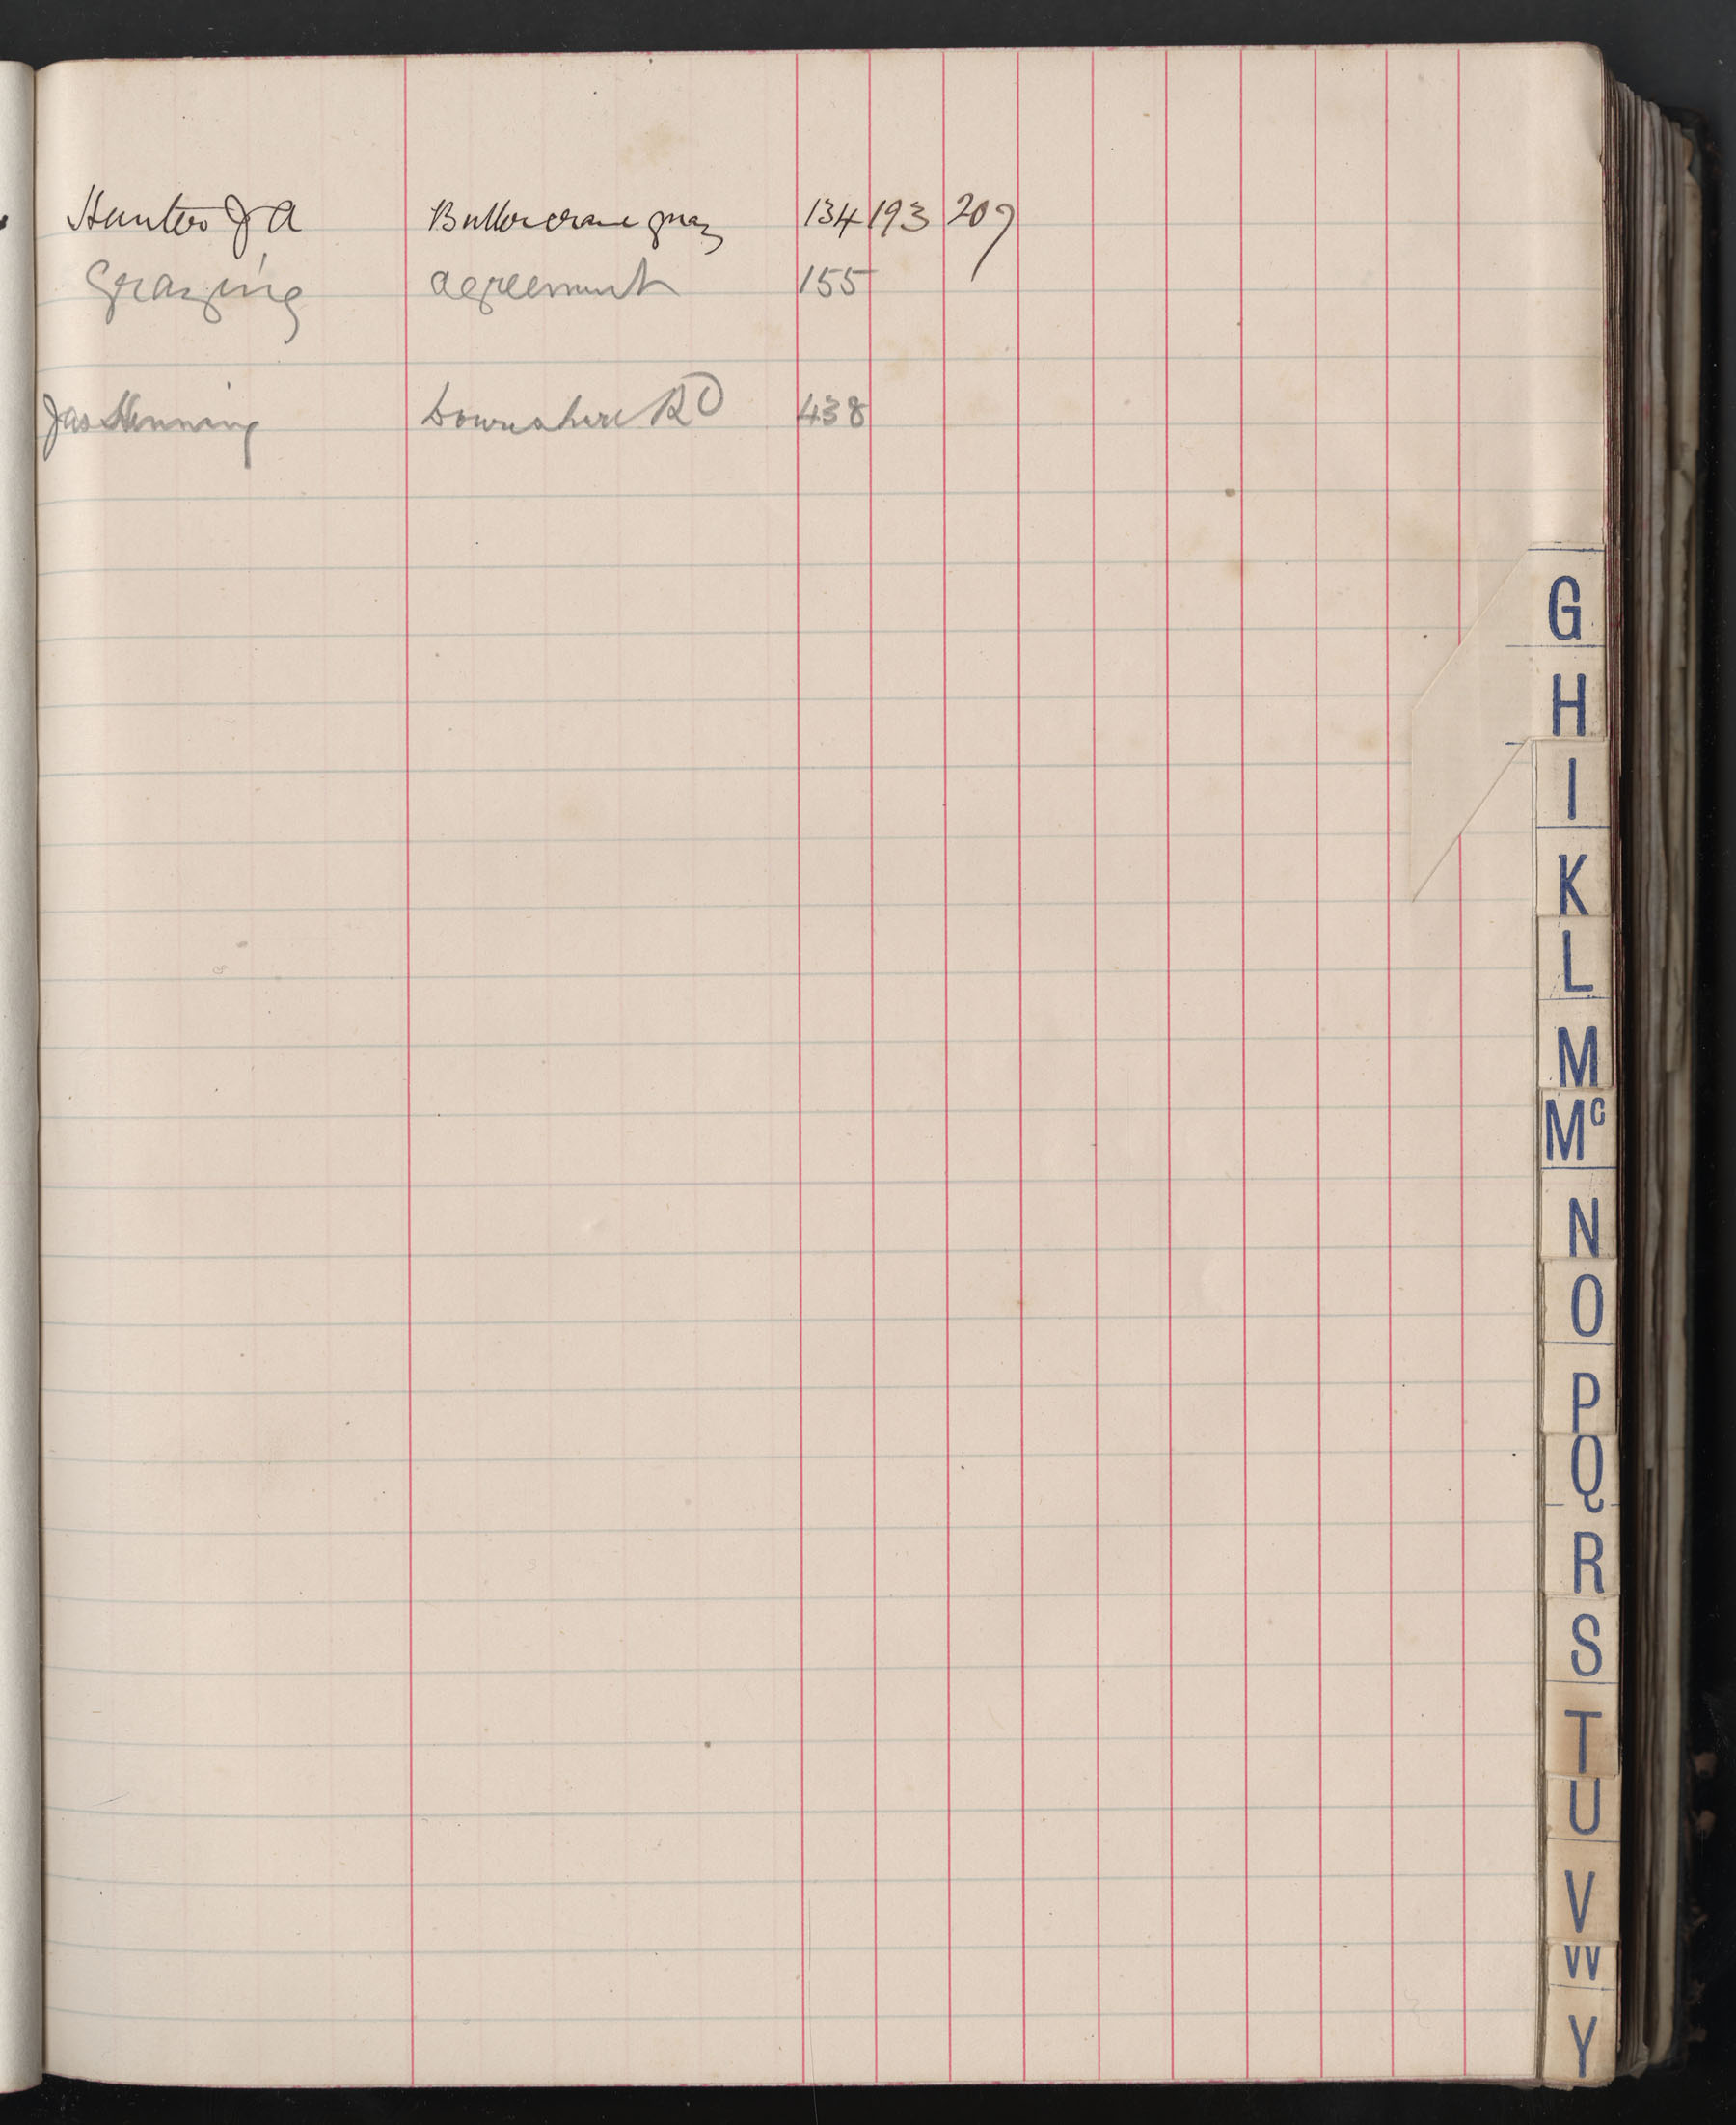 Hunter J A Buttercrane quay 134 193 207
Grazing agreement 155
Jas Henning Downshire RD 438
G
H
I
K
L
M
Mc
N
O
P
Q
R
S
T
U
V
W
Y